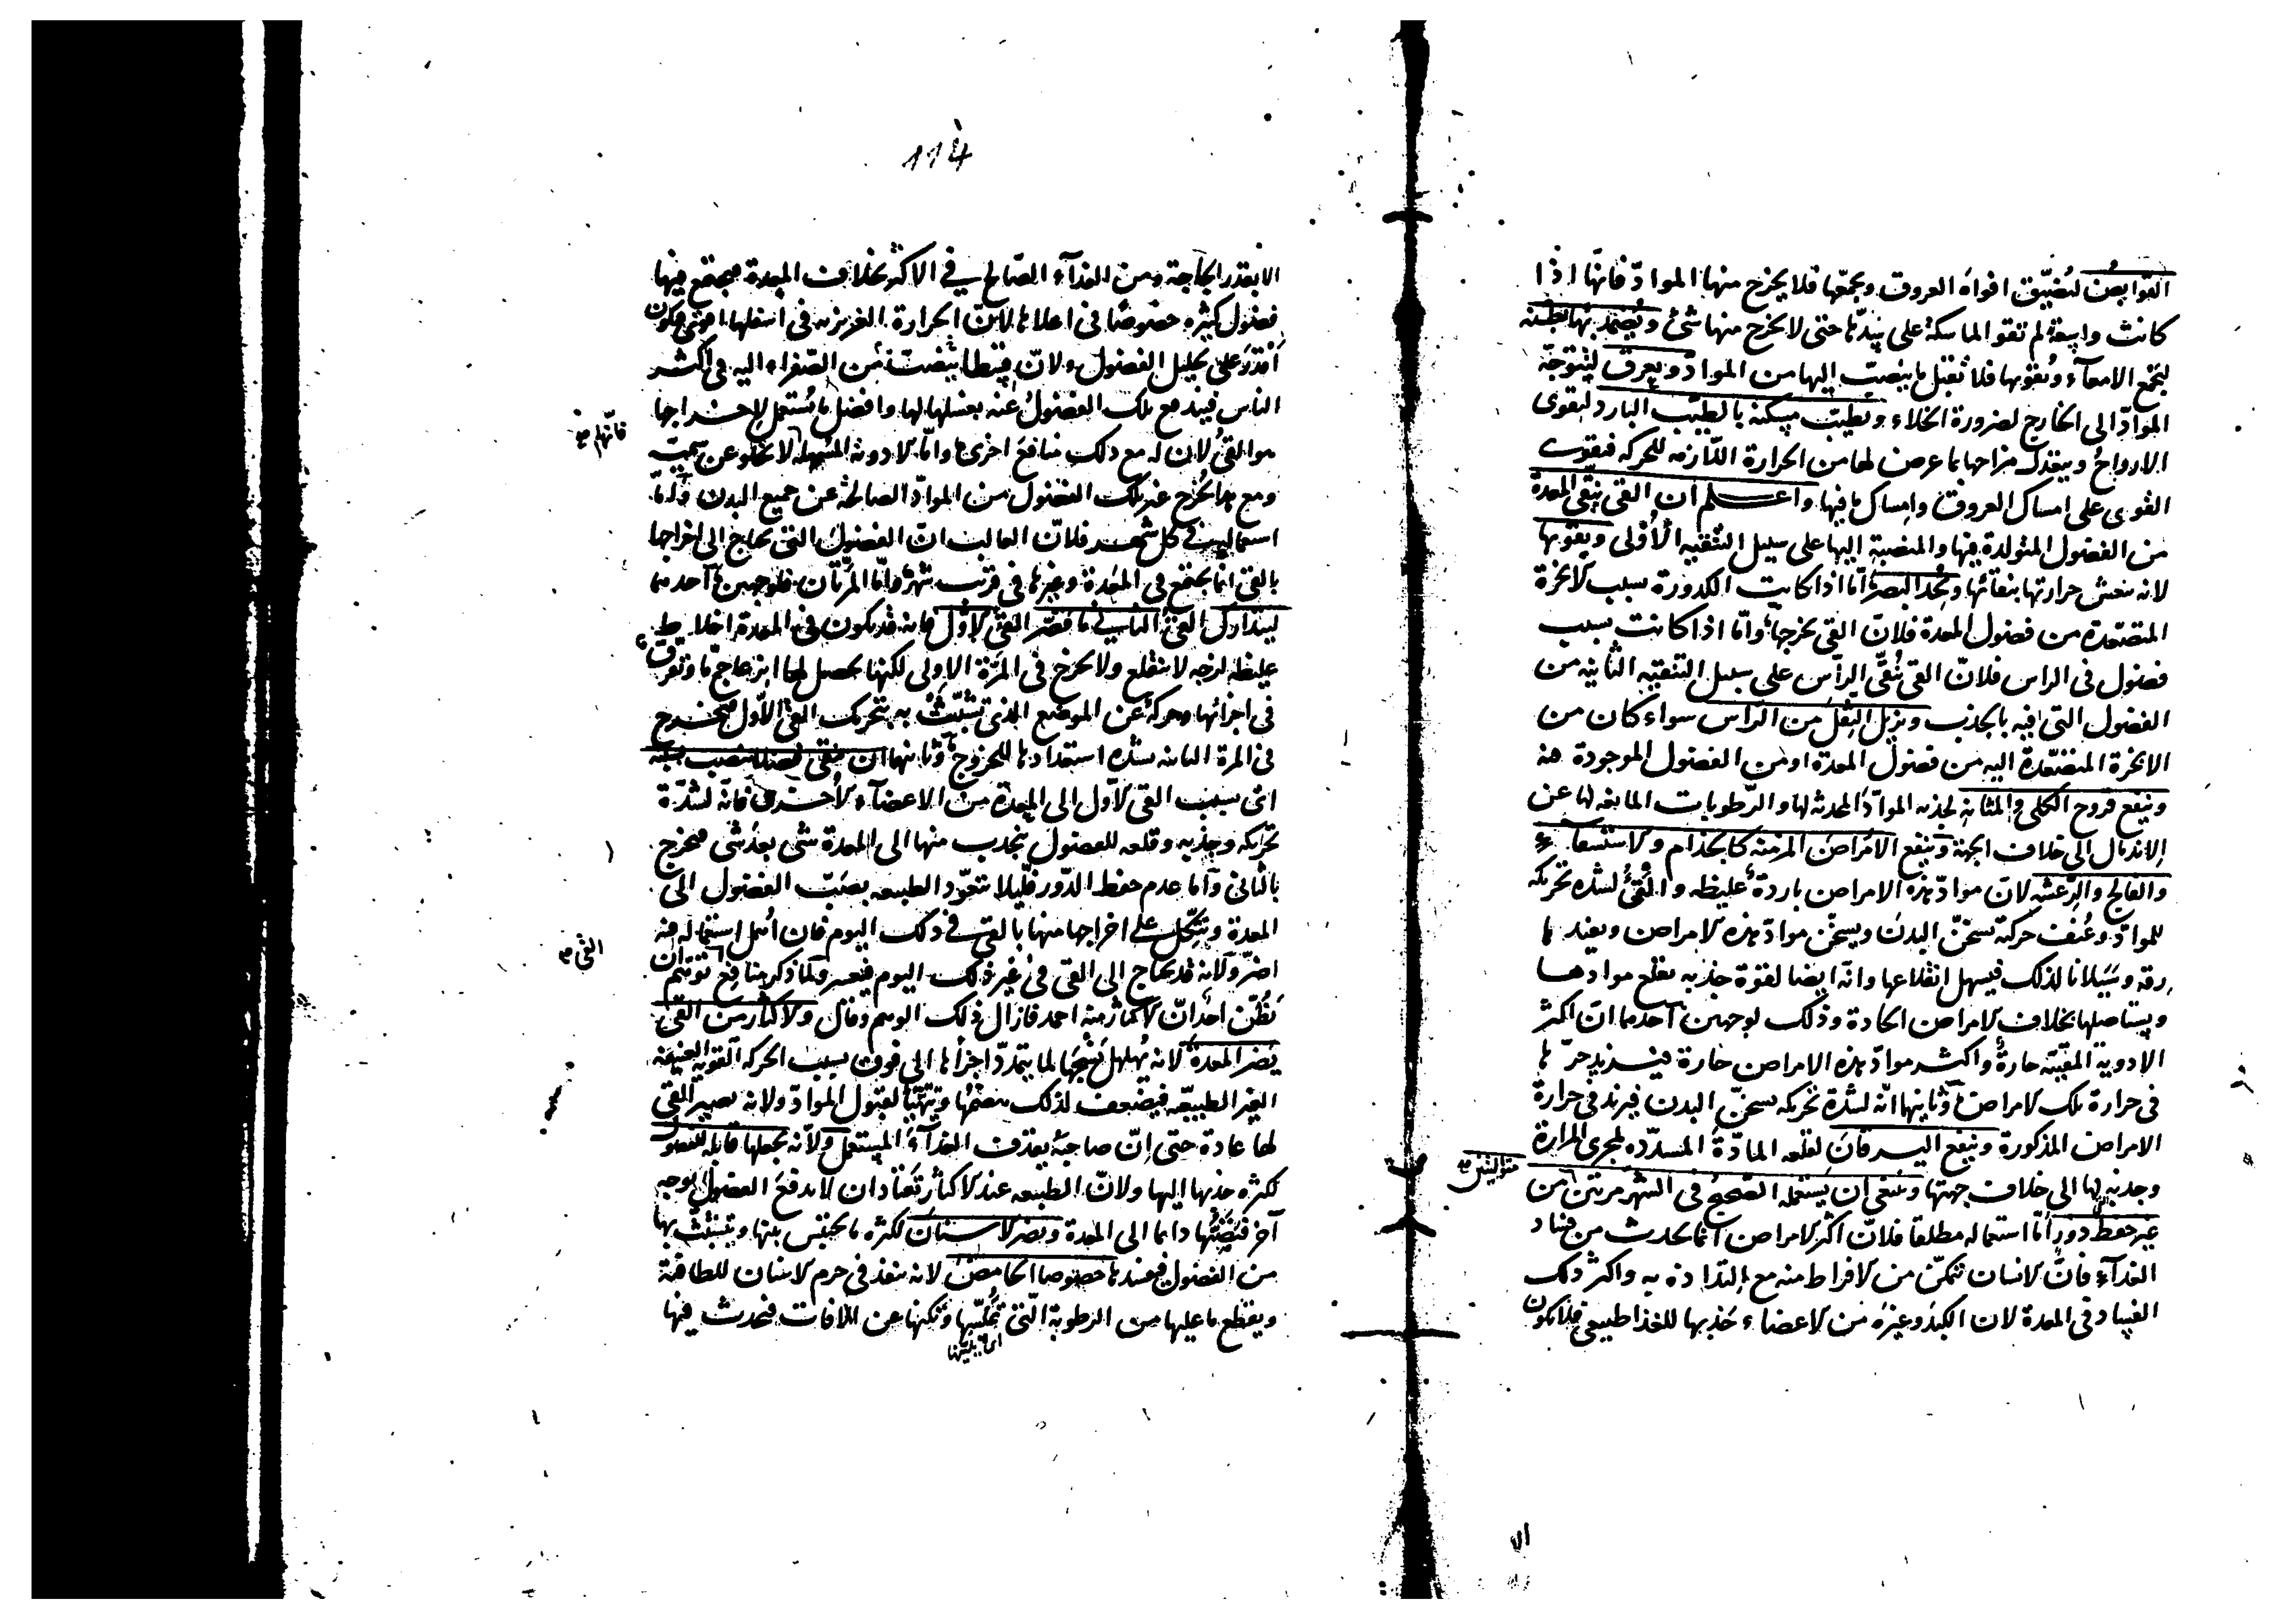 القوابض لتضيّق افواه العروق وبجمعها فلا يخرج منها الموادّ فانها اذا
كانت واسعة لم تقو الماسكة على سدّها حتى لا يخرج منها شئ ويضمد بها بطنه
ليجمع الامعآء وتقويها فلا تقبل ما ينصبّ اليها من الموادّ ويعرق ليتوجّه
الموادّ الى الخارج لضرورة الخلاء ويطيّب مسكنه بالطيب البارد ليقوى
الارواح ويعدل مزاجها مما عرض لها من الحرارة اللازمة للحركة فيقوى
القوى على امساك العروق وامساك ما فيها واعلم ان القى ينقى المعدة
من الفضول المتولدة فيها والمنصبة اليها على سبيل التنقية الأولى ويقويها
لانه ينعش حرارتها بنقائها ويحد البصر امّا اذا كانت الكدورة بسبب الابخرة
المتصعدة من فضول المعدة فلانّ القى يخرجها وامّا اذا كانت بسبب
فضول فى الراس فلانّ القى ينقّى الرأس على سبيل التنقية الثانية من
الفضول التى فيه بالجذب ويزيل الثقل من الراس سواء كان من
الابخرة المتصعّدة اليه من فضول المعدة او من الفضول الموجودة فيه
وينفع قروح الكلى والمثانة لجذبه الموادّ المحدثة لها والرّطوبات المانعة لها عن
الاندمال الى خلاف الجهة وينفع الامراض المزمنة كالجذام والاستسقاء
والفالج والرّعشة لانّ موادّ هذه الامراض باردة غليظة والقئ لشدة تحريكه
للموادّ وعنف حركته تسخّن البدن ويسخّن موادّ هذه الامراض ويفيدها
رقة وسيلانا لذلك فيسهل انقلاعها وانّه ايضا لقوة جذبه يقلع موادها
ويستاصلها بخلاف الامراض الحادة وذلك لوجهين احدهما انّ اكثر
الادوية المقيّئة حارة واكثر موادّ هذه الامراض حارة فيزيد حرّها
فى حرارة تلك الامراض وثانيها انّه لشدة تحريكه يسخّن البدن فيزيد فى حرارة
الامراض المذكورة وينفع اليرقان لقلعه المادّة المسدّدة لمجرى المرارة
وجذبه لها الى خلاف جهتها وينبغى ان يستعمله الصحيح فى الشهر مرتين من
متواليتين صح
غير حفظ دور امّا استعماله مطلقا فلانّ اكثر الامراض انما يحدث من فساد
الغذآء فانّ الانسان تمكّن من الافراط منه مع التذاذه به واكثر ذلك
الفساد فى المعدة لان الكبد وغيره من الاعضاء جذبها للغذا طبيعى فلا يكون
الا
114
الا بقدر الحاجة ومن الغذآء الصّالح فى الاكثر بخلاف المعدة فيجتمع فيها
فضول كثيرة خصوصًا فى اعلاها لانّ الحرارة الغريزية فى اسفلها اقوى فيكون
اقدر على تحليل الفضول ولانّ قسطا ينصبّ من الصّفراء اليه فى اكثر
الناس فيندفع تلك الفضول عنه بغسلها لها وافضل ما يستعمل لاخراجها
هو القئ لان له مع ذلك منافع اخرى وامّا الادوية المسهلة لا يخلو عن سمّيّة
فانّها صح
ومع هذا يخرج غير تلك الفضول من الموادّ الصالحة عن جميع البدن وامّا
استعماله فى كل شهر فلانّ الغالب انّ الفضول التى يحتاج الى اخراجها
بالقى انما يجتمع فى المعدة وغيرها فى قرب شهر وامّا المرّتان فلوجهين احدهما
ليتدارك القئ الثانى ما قصّر القئ الاوّل فانه قد يكون فى المعدة اخلاط
غليظه لزجه لا ينقلع ولا يخرج فى المرّة الاولى لكنها يحصل لها انزعاج ما وتفرق
فى اجزائها وحركة عن الموضع الذى تشبّثت به بتحريك القئ الاوّل فيخرج
فى المرة الثانية لشدة استعدادها للخروج وثانيها ان ينقى فضلا ينصب بسببه
اى بسبب القى الاوّل الى المعدة من الاعضآء الاخرى فانّه لشدّة
تحريكه وجذبه وقلعه للفضول ينجذب منها الى المعدة شى بعد شى فيخرج
بالثانى وامّا عدم حفظ الدّور فلئلا تتعوّد الطبيعه بصبّ الفضول الى
المعدة وتتّكل على اخراجها منها بالقى فى ذلك اليوم فان اهمل استعماله فيه
القى صح
اضرّ ولانه قد يحتاج الى القى فى غير ذلك اليوم فيعسر ولما ذكر منافع توهّم ان
يظنّ احد انّ الاكثار منه احمد فازال ذلك الوهم وقال والاكثار من القئ
يضر المعدة لانه يهلهل نسجها لما يتمدّد اجزاؤها الى فوق بسبب الحركة القوية العنيفة
الغير الطبيعيّه فيضعف لذلك هضمها ويتهيّأ لقبول الموادّ ولانه يصير القئ
لها عادة حتى انّ صاحبه يقذف الغذآء المستعمل ولانّه يجعلها قابلة للفضول
لكثرة جذبها اليها ولانّ الطبيعه عند الاكثار تعتاد ان لا يدفع الفضول بوجه
آخر فتصبّها دايما الى المعدة ويضر الاسنان لكثرة ما يحتبس بينها ويتشبّث بها
من الفضول فيفسدها خصوصا الحامض لانه ينفذ فى جرم الاسنان للطافتة
ويقطع ما عليها من الرطوبة الّتى تملّسها وتكنها عن الافات فيحدث فيها